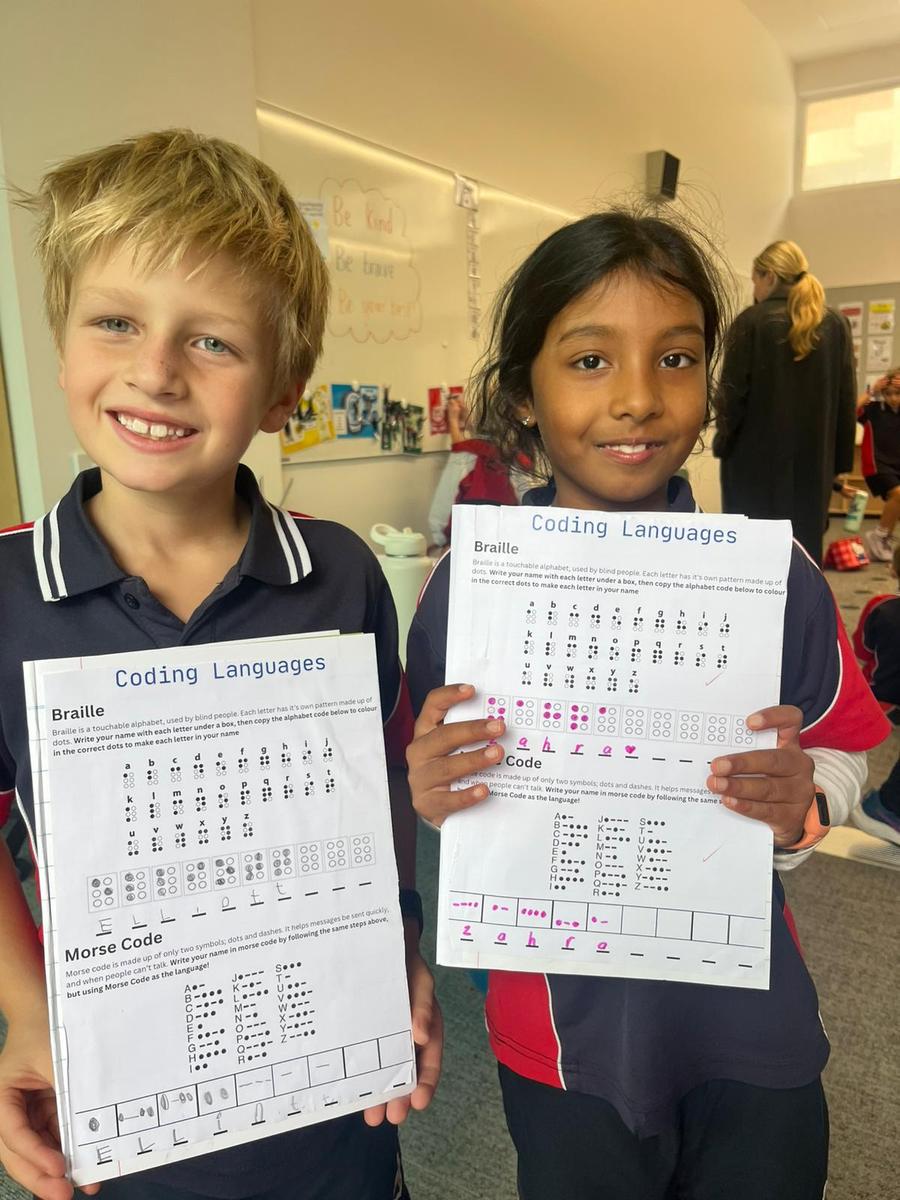 Be Kind
Be brave
Be your
Coding Languages
Braille
Braille is a touchable alphabet, used by blind people. Each letter has it's own pattern made up of
dots. Write your name with each letter under a box, then copy the alphabet code below to colour
in the correct dots to make each letter in your name
a b c d e f g h i j
k l m n o p q r s t
u v w x y z
E L L i o t t
Morse Code
Morse code is made up of only two symbols; dots and dashes. It helps messages be sent quickly,
and when people can't talk. Write your name in morse code by following the same steps above,
but using Morse Code as the language!
A J S
B K T
C L U
D M V
E N W
F O X
G P Y
H Q Z
I R
E L L i o t t
Coding Languages
Braille
Braille is a touchable alphabet, used by blind people. Each letter has it's own pattern made up of
dots. Write your name with each letter under a box, then copy the alphabet code below to colour
in the correct dots to make each letter in your name
a b c d e f g h i j
k l m n o p q r s t
u v w x y z
a h r a ♥
Code
code is made up of only two symbols; dots and dashes. It helps messages
and when people can't talk. Write your name in morse code by following the same
Morse Code as the language!
A J S
B K T
C L U
D M V
E N W
F O X
G P Y
H Q Z
I R
z a h r a